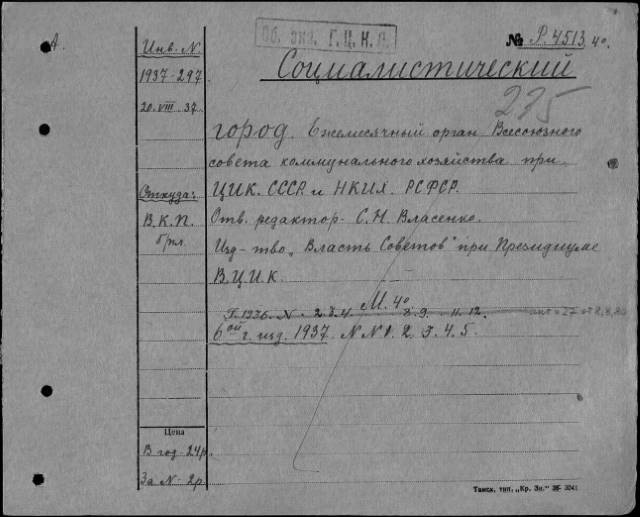 А.
Об. экз. Г.Ц.К.П.
№ Р.4513 4о.
Социалистический
235
город. Ежемесячный орган Всесоюзного
совета коммунального хозяйства при
ЦИК. СССР. и НККХ. РСФСР.
Отв. редактор - С. Н. Власенко.
Изд-тво „Власть Советов" при Президиуме
В.Ц.И.К.
М. 4о
Г. 1936. N - 2. 3. 4. 8. 9. - 11. 12.
6ой г. изд. 1937. N N 1. 2. 3. 4. 5.
Инв. N.
1937-297.
20.VIII.37.
Откуда:
В.К.П.
Цена
В год - 24р.
За N - 2р.
Тамск. тип. „Кр. Зн."